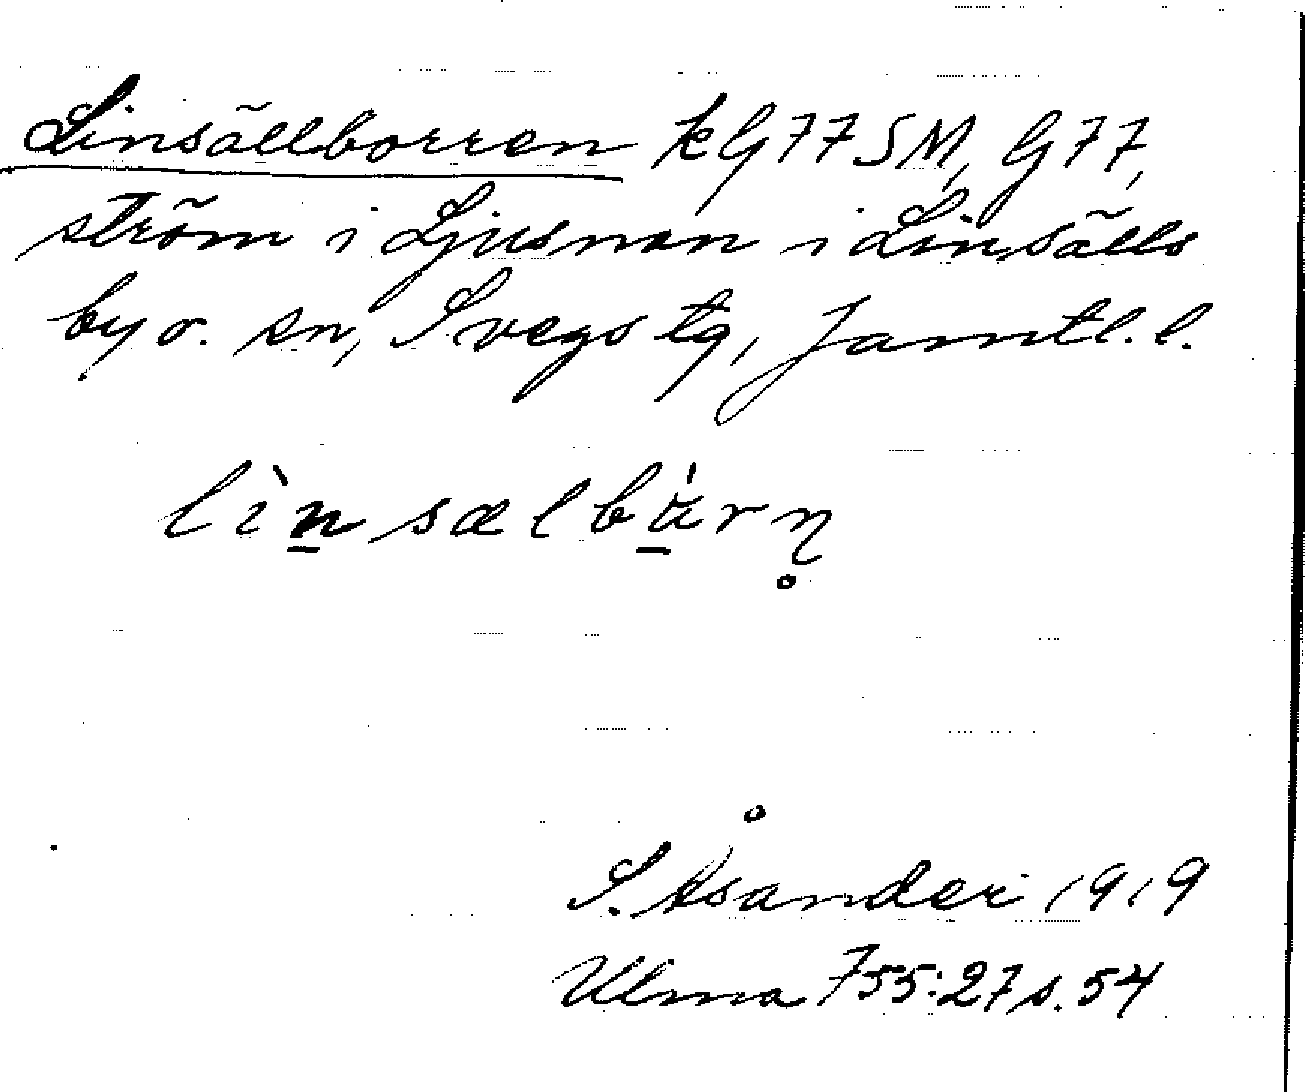 Linsällborren kG77SM, G77,
ström i Ljusnan i Linsälls
by o. sn, Svegs tg, Jämtl. l.
lìn̲sælbà̲rn̥
S. Åsander 1919
Ulma 755:27 s. 54